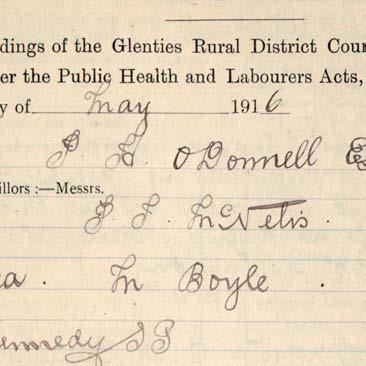 dings of the Glenties Rural District Coun
er the Public Health and Labourers Acts,
y of May 1916
P. H. O'Donnell E
illors :—Messrs.
P. J. McNelis.
M Boyle .
Kennedy J P